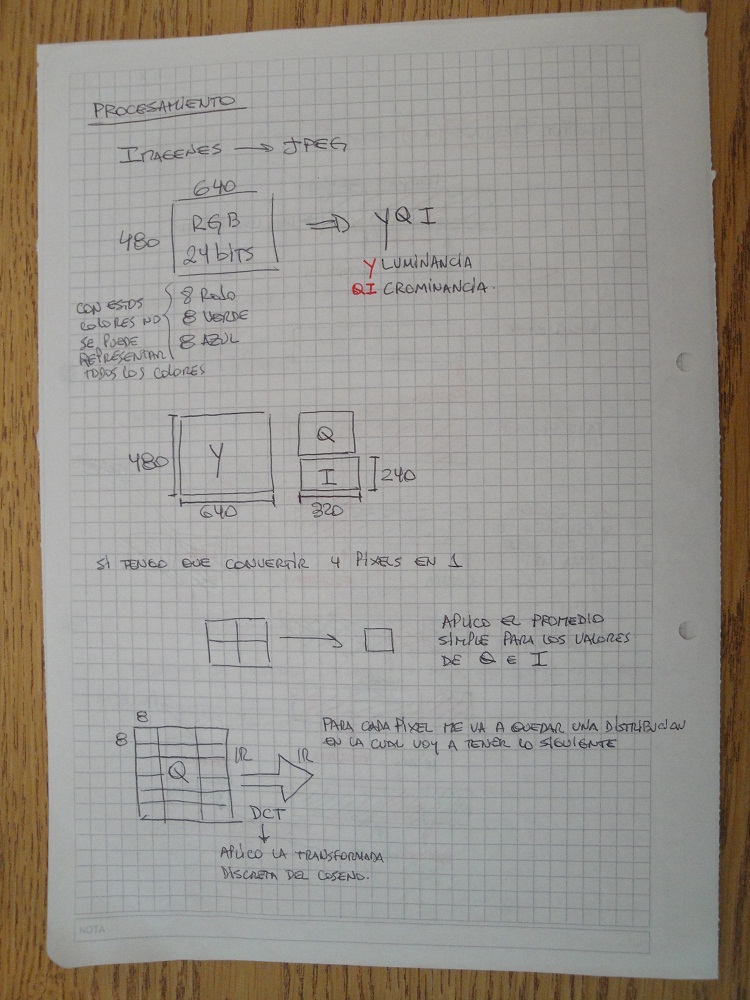 PROCESAMIENTO
IMAGENES → JPEG
640
480
RGB
24 bits
⇒ YQI
Y LUMINANCIA
QI CROMINANCIA.
CON ESTOS
COLORES NO
SE PUEDE
REPRESENTAR
TODOS LOS COLORES
8 ROJO
8 VERDE
8 AZUL
480
Y
640
Q
I
240
320
SI TENGO QUE CONVERTIR 4 PIXELS EN 1
APLICO EL PROMEDIO
SIMPLE PARA LOS VALORES
DE Q E I
8
8
Q
IR
IR
DCT
APLICO LA TRANSFORMADA
DISCRETA DEL COSENO.
PARA CADA PIXEL ME VA A QUEDAR UNA DISTRIBUCION
EN LA CUAL VOY A TENER LO SIGUIENTE
NOTA